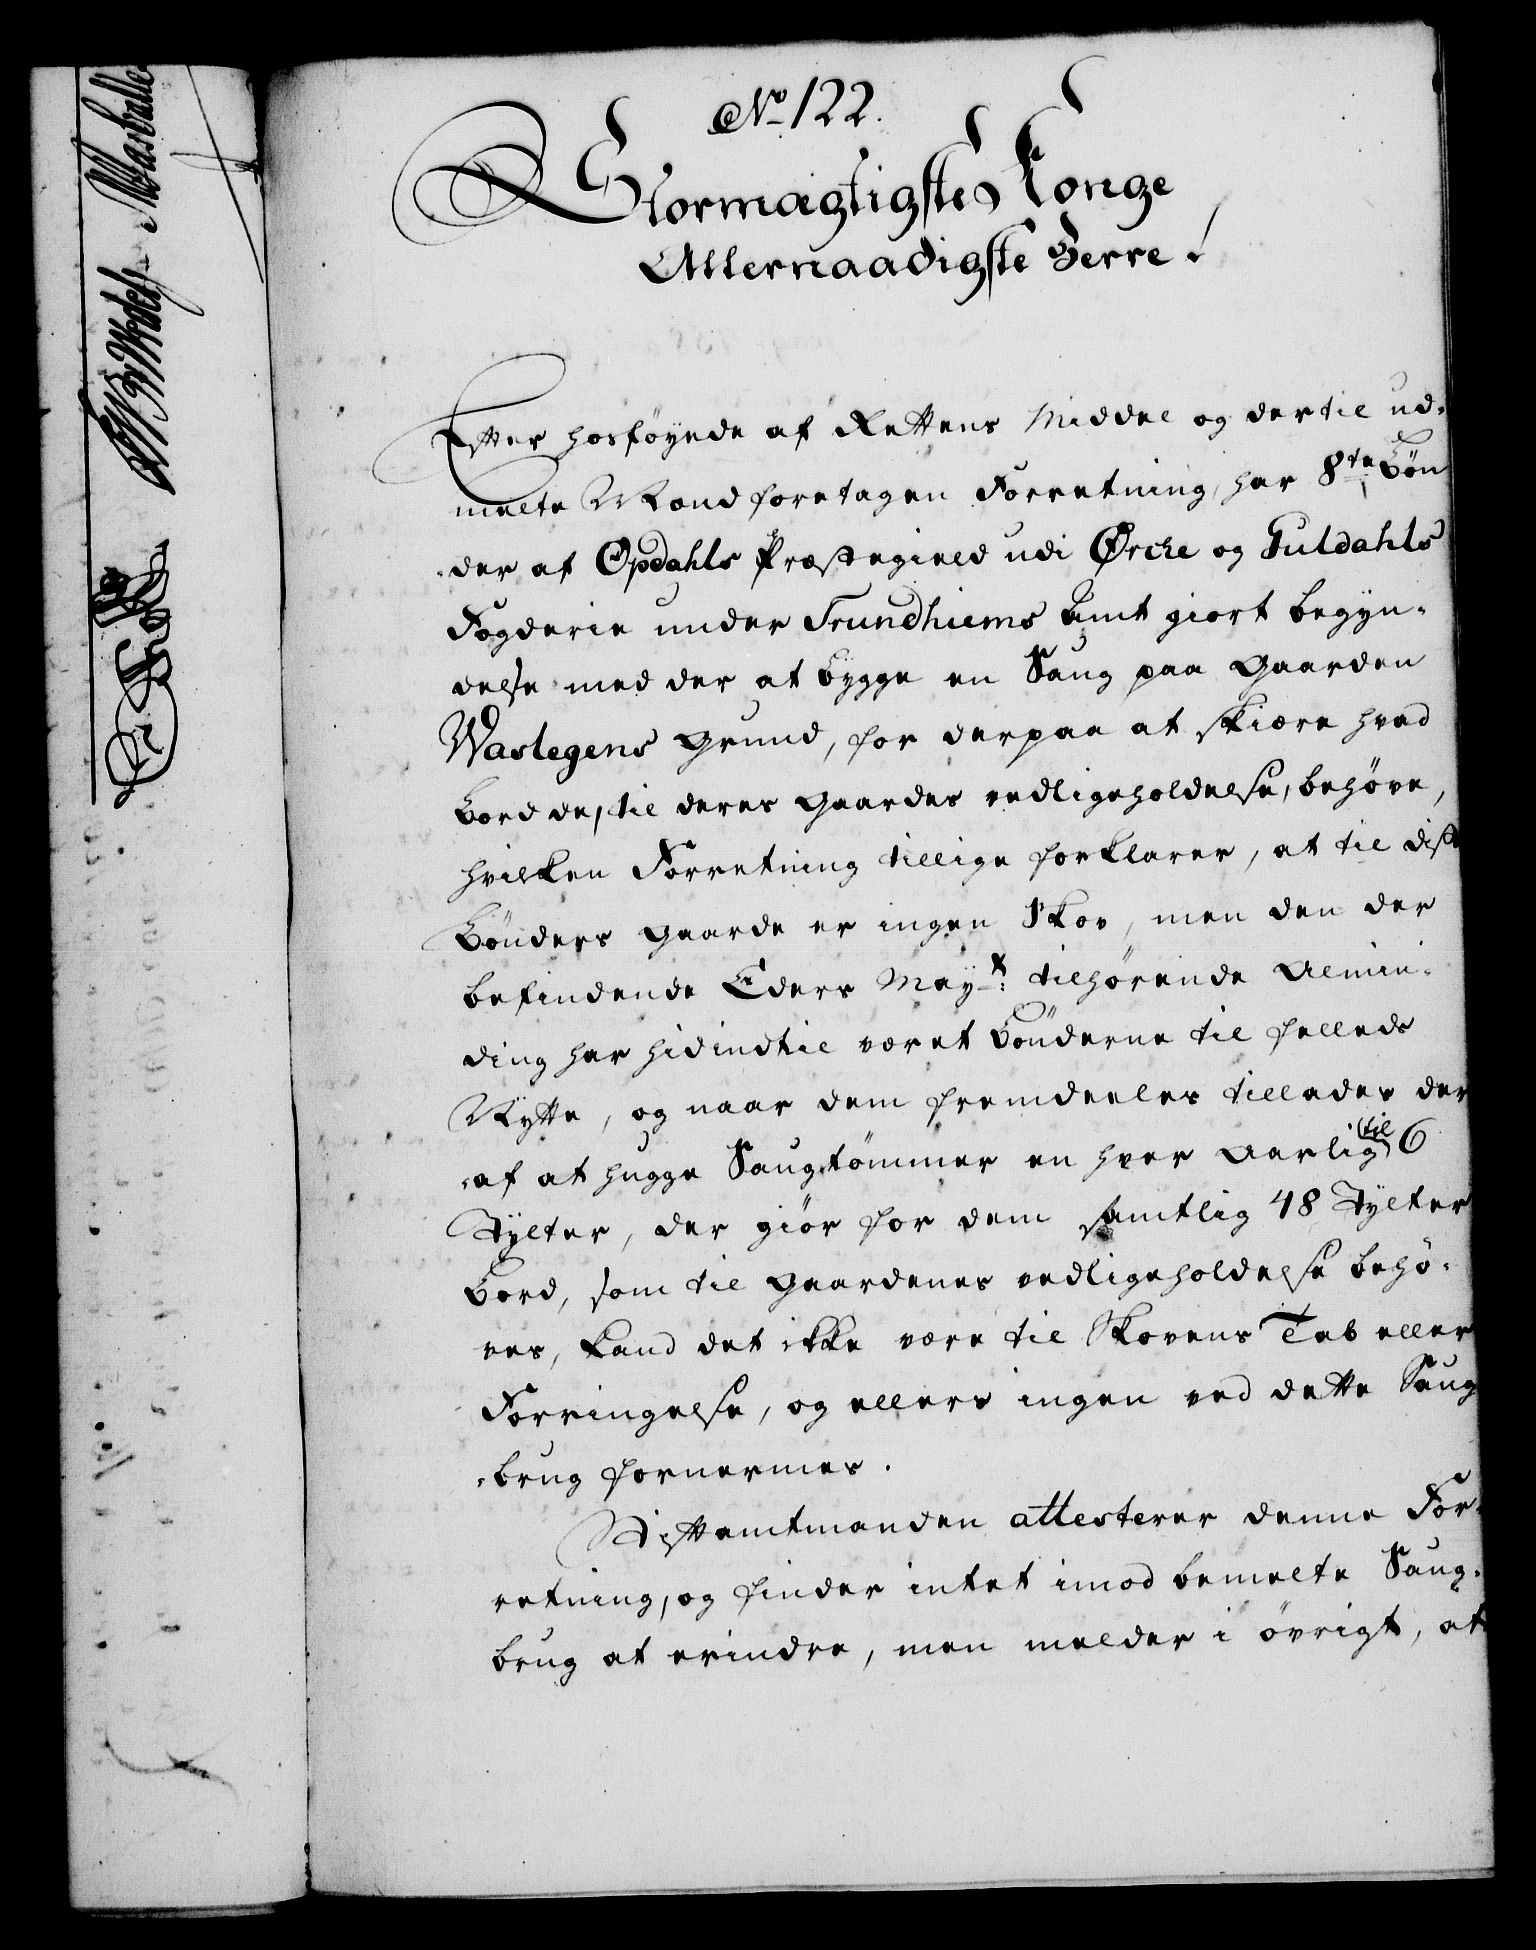 No 122.
Stormægtigste Konge
Allernaadigste Herre!
Efter hosføyede af Rettens Middel og dertil ud-
melte Mænd foretagen Forretning, har 8te Bøn
-der af Opdahls Præstegield udi Örche og Guldahls
Fogderie under Trundhiems Amt giort begyn-
delse med der at bygge en Saug paa Gaarden
Waslegens Grund, for derpaa at skiære hvad
Bord de, til deres Gaardes vedligeholdelse, behöve,
hvilken Forretning tillige forklarer, at til disse
Bönders Gaarde er ingen Skov, men den der
befindende Eders Mayts: tilhørende Almin-
ding har hidindtil været Bönderne til fælleds
Nytte, og naar dem fremdeeles tillades der
-af at hugge Saugtömmer en hver Aarlig til 6
Tylter, der giör for dem samtlig 48 Tylter
Bord, som til Gaardenes vedligeholdelse behö-
ves, kand det ikke være til Skovens Tab eller
Forringelse, og ellers ingen ved dette Saug
-brug fornærmes.
Stiftamtmanden attesterer denne For-
retning, og finder intet imod bemelte Saug-
brug at erindre, men melder i övrigt, at